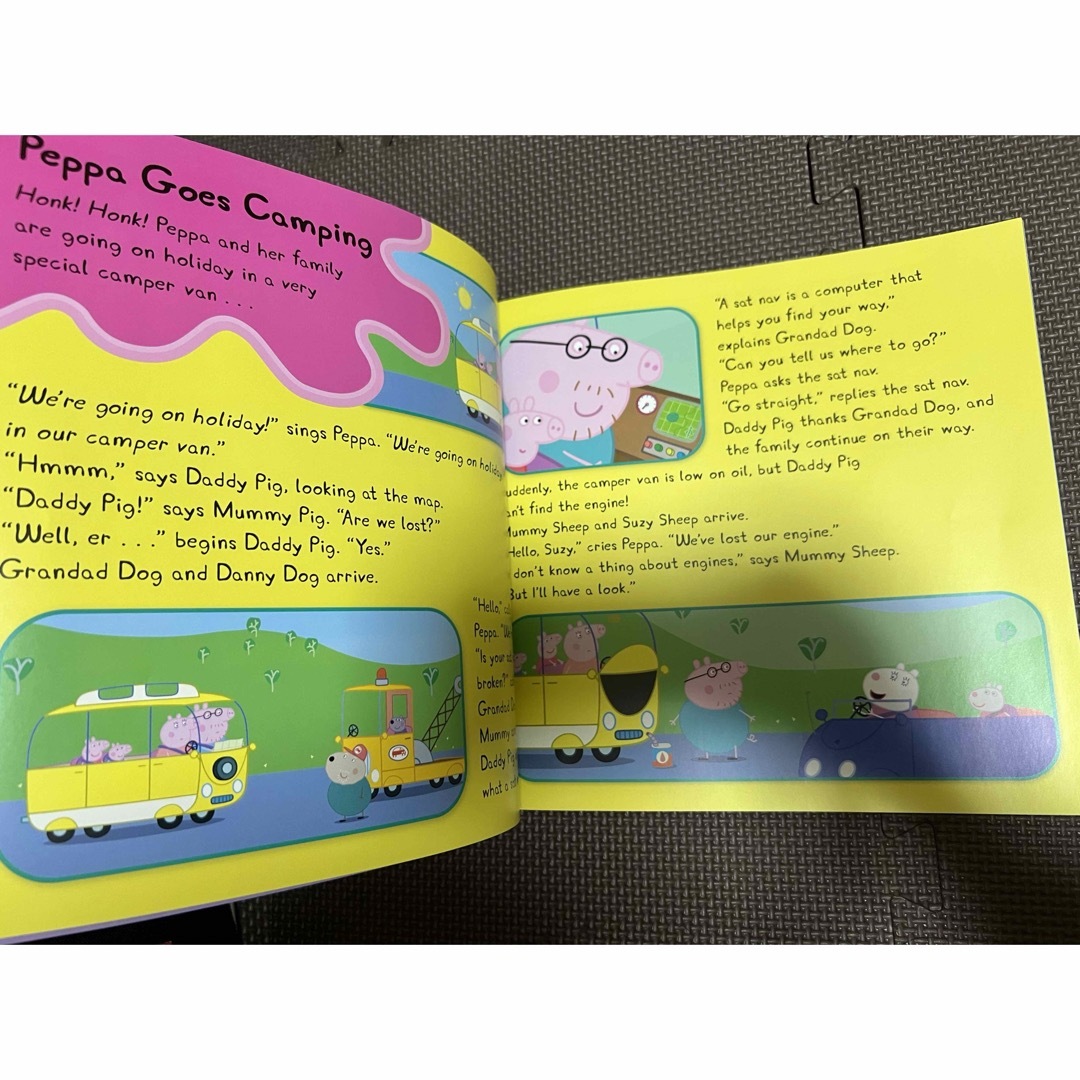 Peppa Goes Camping
Honk! Honk! Peppa and her family
are going on holiday in a very
special camper van . . .
“We’re going on holiday!” sings Peppa. “We’re going on
in our camper van.”
“Hmmm,” says Daddy Pig, looking at the map.
“Daddy Pig!” says Mummy Pig. “Are we lost?”
“Well, er . . .” begins Daddy Pig. “Yes.”
Grandad Dog and Danny Dog arrive.
“Hello,”
Peppa.
“Is your
broken?”
Grandad
Mummy
Daddy
what a
“A sat nav is a computer that
helps you find your way,”
explains Grandad Dog.
“Can you tell us where to go?”
Peppa asks the sat nav.
“Go straight,” replies the sat nav.
Daddy Pig thanks Grandad Dog, and
the family continue on their way.
the camper van is low on oil, but Daddy Pig
find the engine!
Sheep and Suzy Sheep arrive.
Suzy,” cries Peppa. “We’ve lost our engine.”
don’t know a thing about engines,” says Mummy Sheep.
I’ll have a look.”